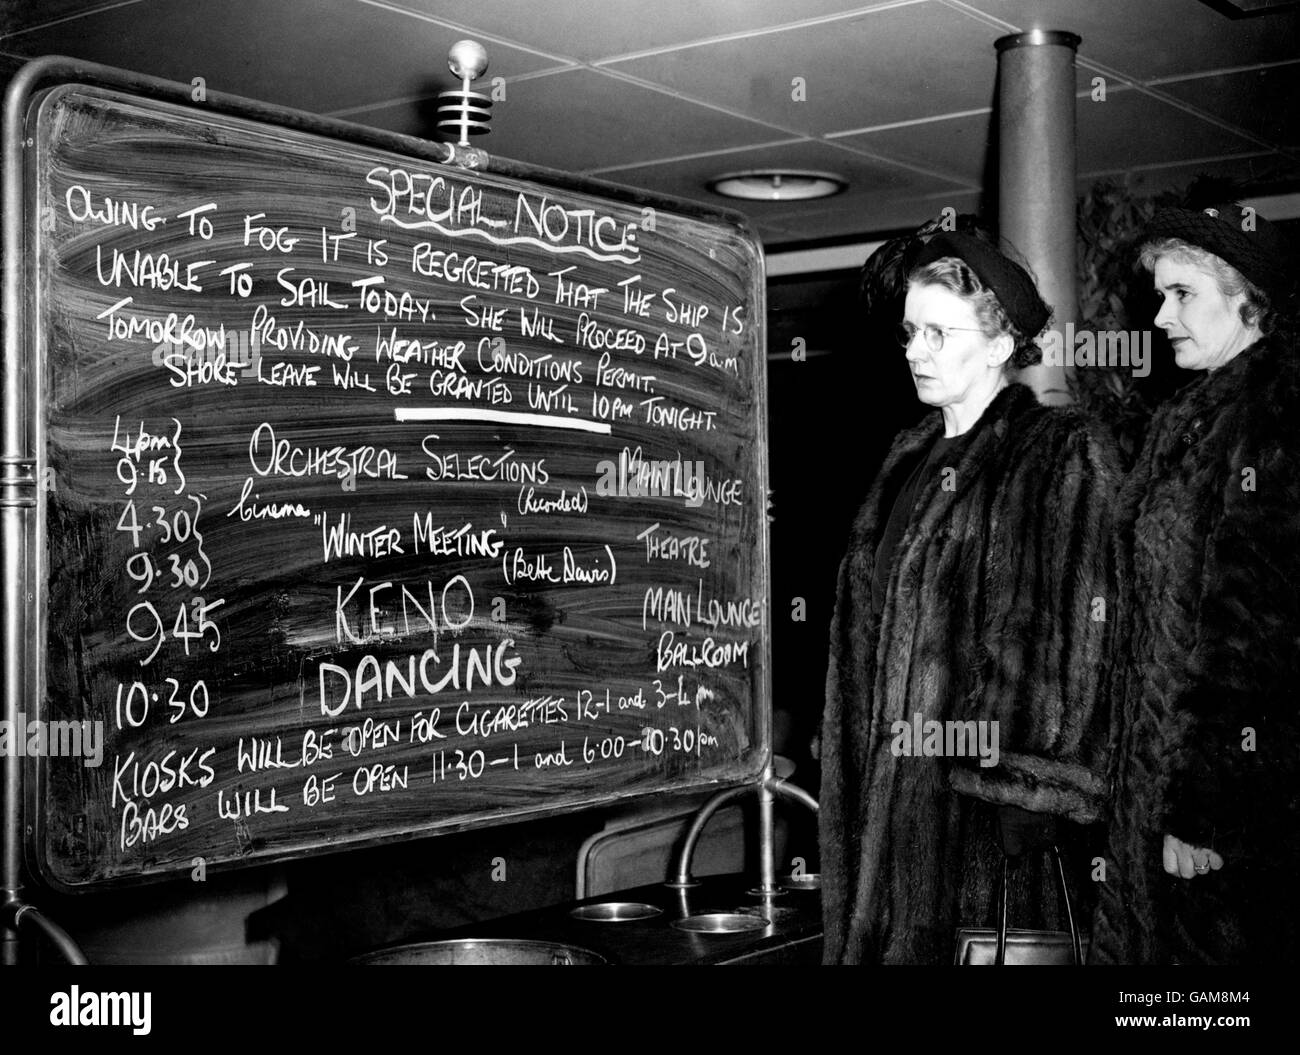 SPECIAL NOTICE
OWING TO FOG IT IS REGRETTED THAT THE SHIP IS
UNABLE TO SAIL TODAY. SHE WILL PROCEED AT 9am
TOMORROW PROVIDING WEATHER CONDITIONS PERMIT.
SHORE LEAVE WILL BE GRANTED UNTIL 10PM TONIGHT.
4pm} 9.15 ORCHESTRAL SELECTIONS (Recorded) MAIN LOUNGE
4.30} 9.30 Cinema "WINTER MEETING" (Bette Davis) THEATRE
9 45 KENO MAIN LOUNGE
10.30 DANCING BALLROOM
KIOSKS WILL BE OPEN FOR CIGARETTES 12-1 and 3-4 pm
BARS WILL BE OPEN 11.30-1 and 6.00-10.30pm
a alamy stock photo
GAM8M4
www.alamy.com